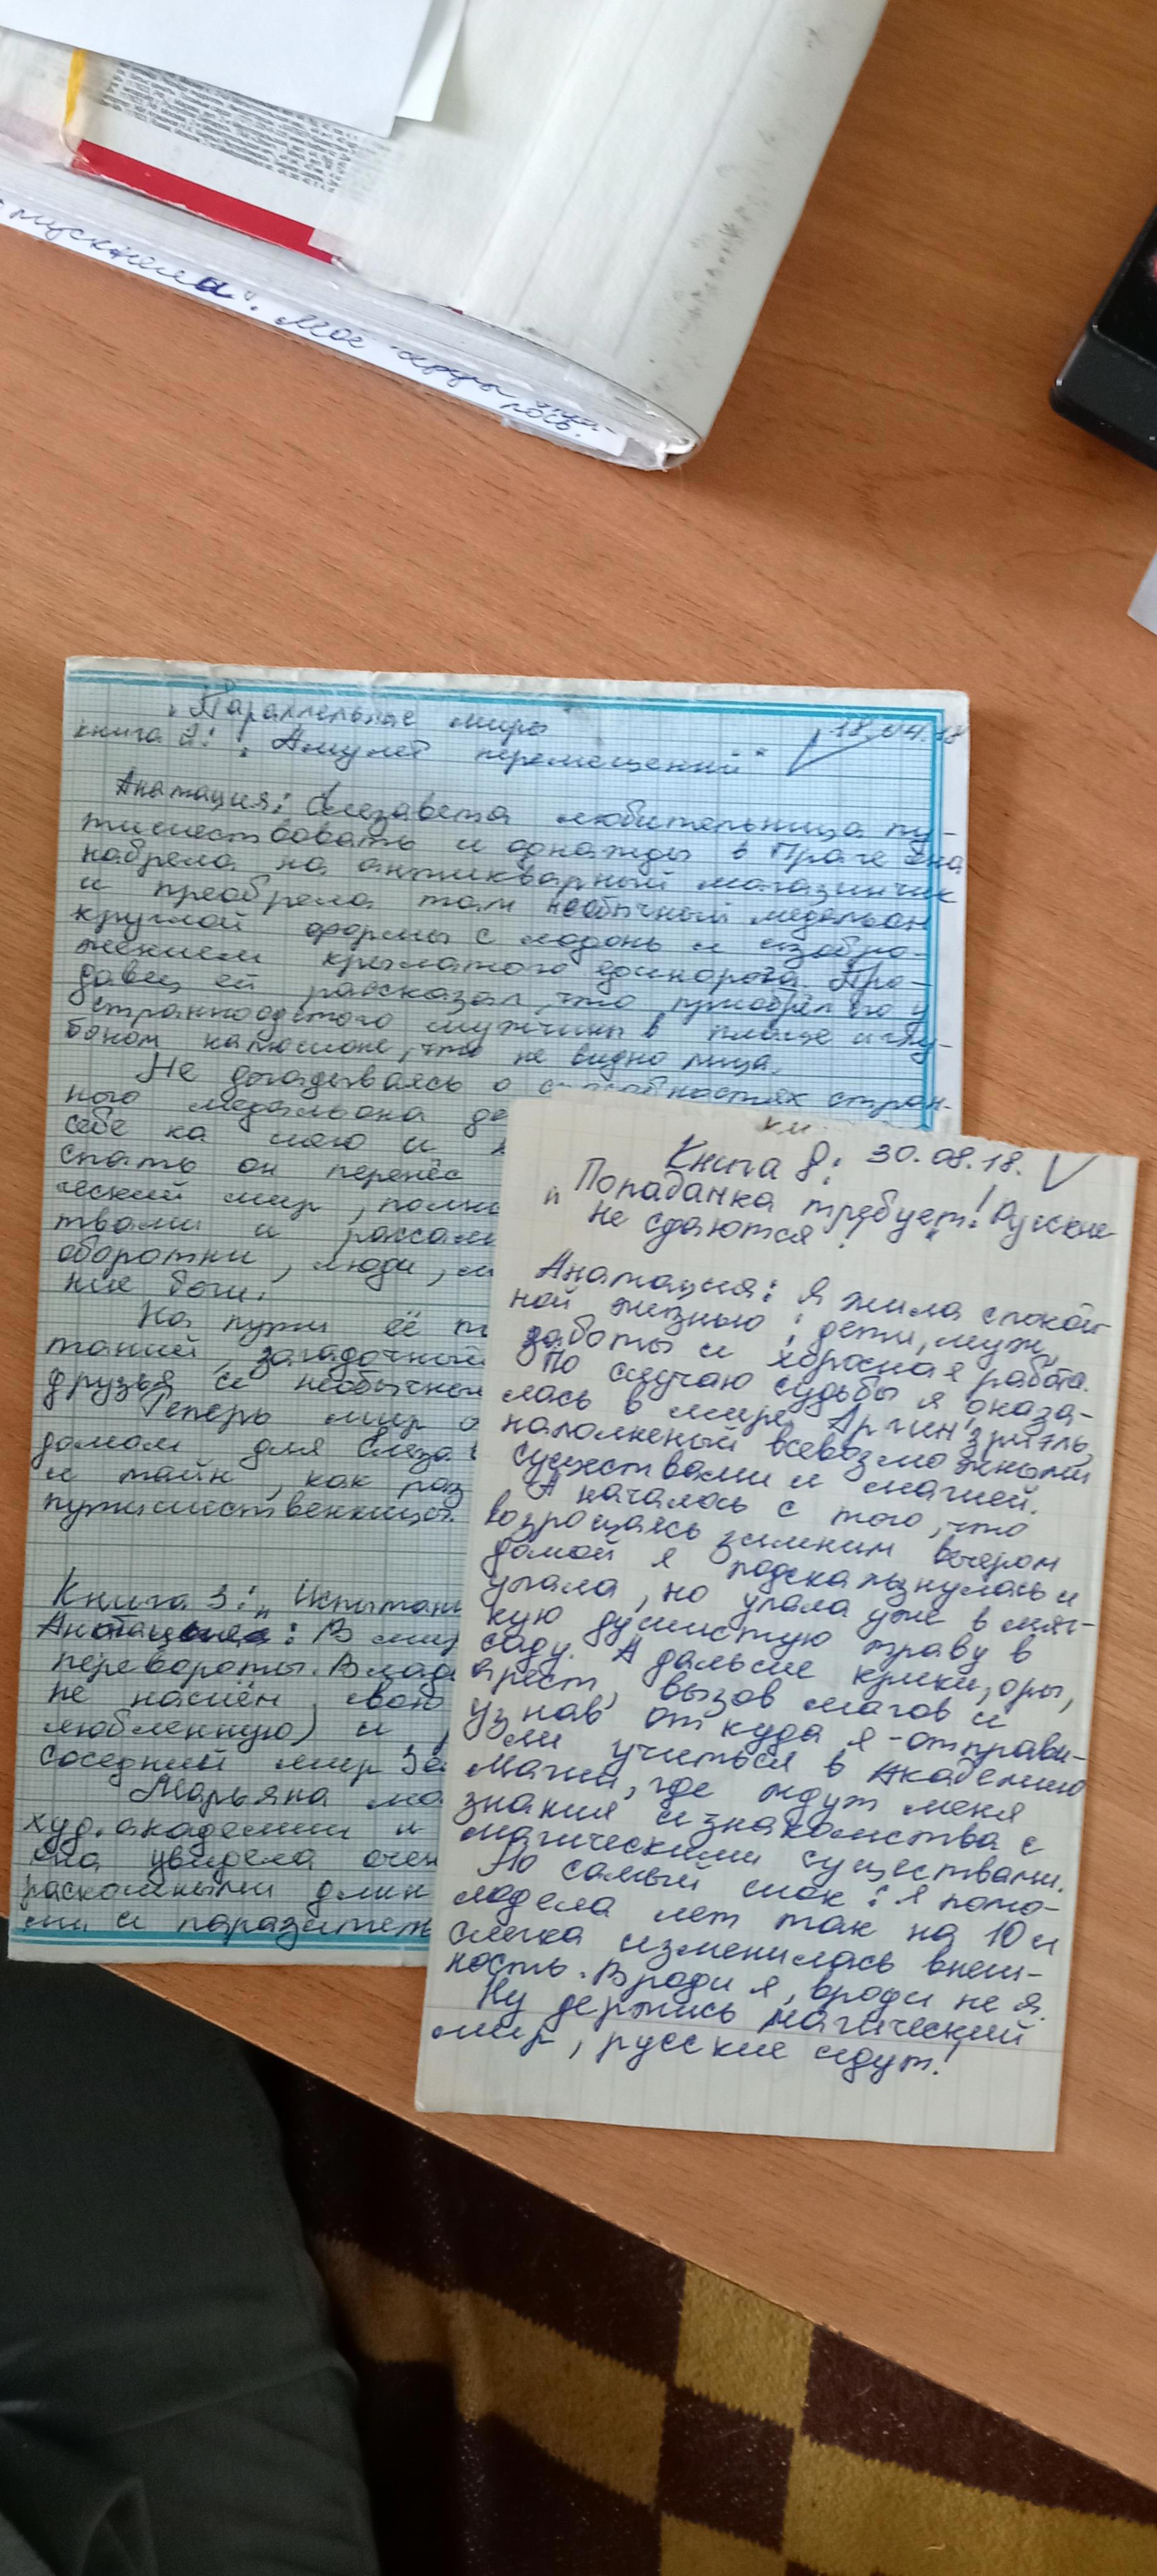 пускнела. Моё
лось.
"Параллельные миры
18.04.18
книга 2: "Амулет перемещений"
Анатация: Елизавета любительница пу-
тишествовать и однажды в Праге она
набрела на антикварный магазинчик
и преобрела там необычный медальон
круглой формы с ладонь и изобра-
жением крылатого единорога. Про-
давец ей рассказал, что приобрёл его у
странноодетого мужчины в плаще и глу-
боком капюшоне, что не видно лица.
Не догадываясь о способностях стран-
ного медальона
себе на шею и
спать он перенёс
ческий мир,
твами и рассами
оборотни, люди,
ние боги.
На пути её
таний, загадочный
друзья и необычные
Теперь мир
домом для Елиза
и тайн, как раз
путишественницы.
Книга 3: "Испытан
Анатация: В мире
перевороты. Влад
не нашён свою
любленную) и
соседний мир
Марьяна
худ. академии и
она увидела очен
раскошными длин
ми и паразитель
Книга 8: 30.08.18.
"Попаданка требует! Руские
не сдаются!"
Анатация: Я жила спокой-
ной жизнью: дети, муж,
заботы и хорошая работа.
По случаю судьбы я оказа-
лась в мире Аргин'зриэль,
наполненый всевозможными
существами и магией.
А началось с того, что
возрощаясь зимним вечером
домой я подскальзнулась и
упала, но упала уже в мяг-
кую душистую траву в
саду. А дальше крики, оры,
арест, вызов магов и
узнав откуда я - отправи-
ли учиться в Академию
Магии, где ждут меня
знания и знакомства с
магическими существами.
Но самый шок: я помо-
лодела лет так на 10 и
слегка изменилась внеш-
ность. Вроди я, вроди не я.
Ну держись магический
мир, русские идут!